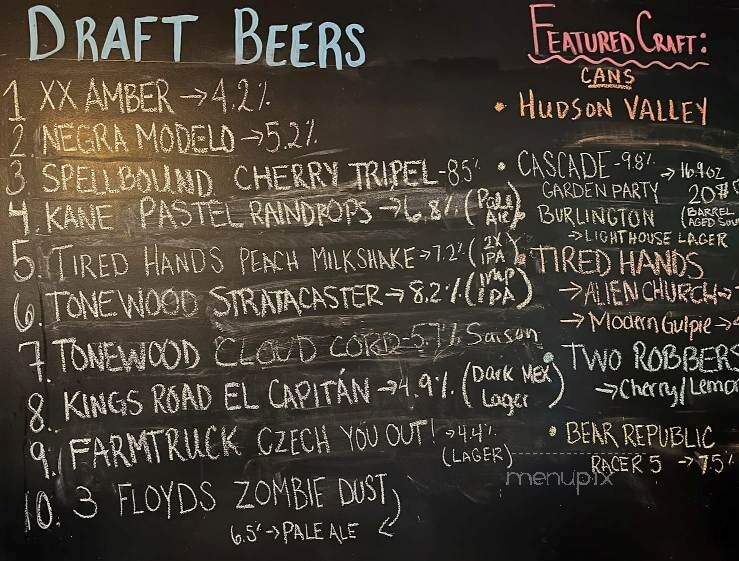 DRAFT BEERS
1 XX AMBER → 4.2%
2. NEGRA MODELO → 5.2%
3. SPELLBOUND CHERRY TRIPEL - 85%
4. KANE PASTEL RAINDROPS → 6.8% (Pale Ale)
5. TIRED HANDS PEACH MILKSHAKE → 7.2% (2X IPA)
6. TONEWOOD STRATACASTER → 8.2% (IMP IPA)
7. TONEWOOD CLOUD CORD - 5.7% Saison
8. KINGS ROAD EL CAPITÁN → 4.9% (Dark Mex Lager)
9. FARMTRUCK CZECH YOU OUT! → 4.4%
(LAGER)
10. 3 FLOYDS ZOMBIE DUST
6.5% → PALE ALE
FEATURED CRAFT:
CANS
• HUDSON VALLEY
• CASCADE - 9.8% → 16.9oz
GARDEN PARTY 20#
BURLINGTON (BARREL AGED SOU
→ LIGHTHOUSE LAGER
• TIRED HANDS
→ ALIEN CHURCH →
→ Modern Gulpie →
• TWO ROBBERS
→ Cherry/Lemo
• BEAR REPUBLIC
RACER 5 → 7.5%
menupix